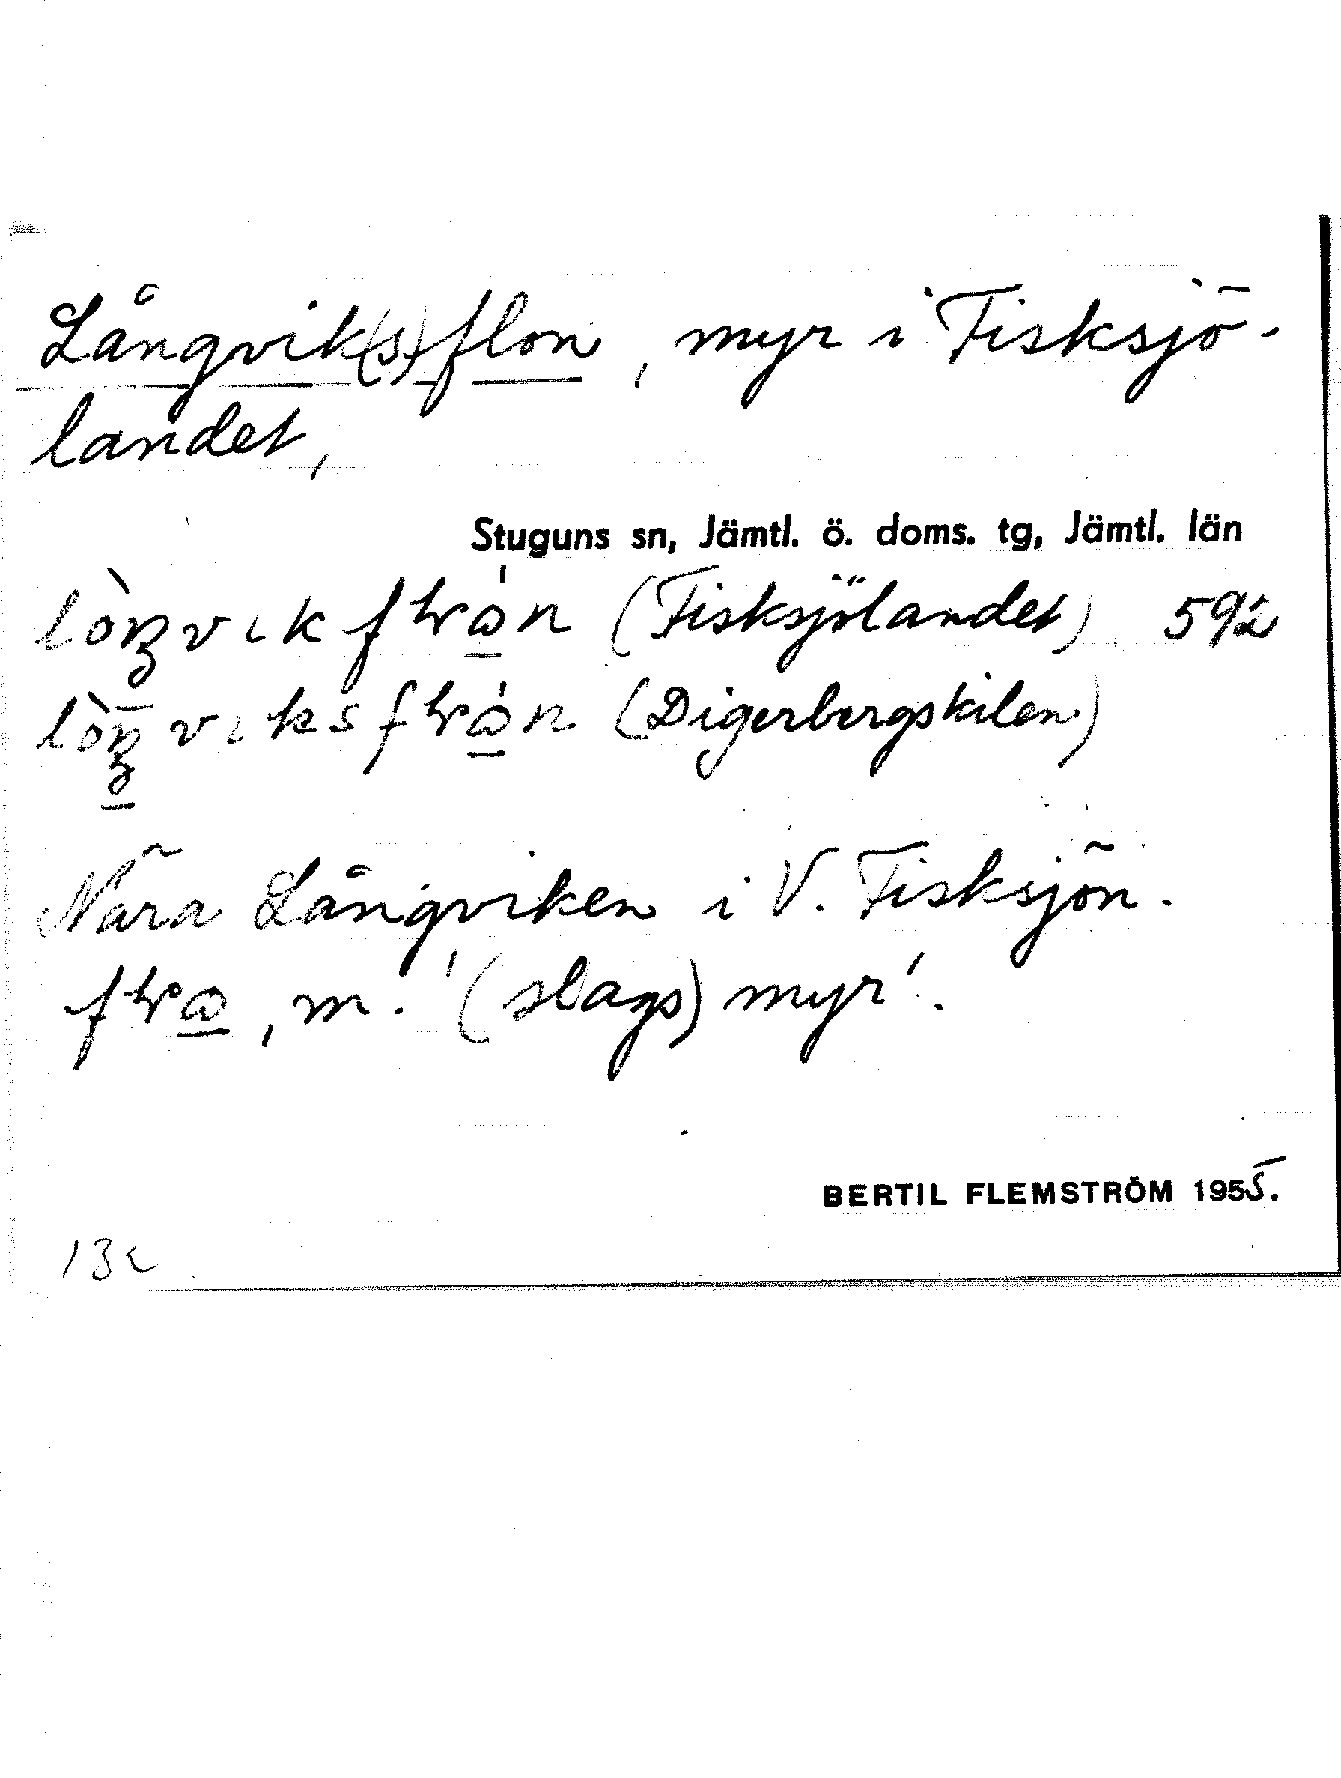 Långvik(s)flon, myr i Fisksjö-
landet,
Stuguns sn, Jämtl. ö. doms. tg, Jämtl. län
(Fisksjölandet)
(Digerbergskilen)
Nära Långviken i V. Fisksjön.
m. '(slags) myr'.
BERTIL FLEMSTRÖM 1955.